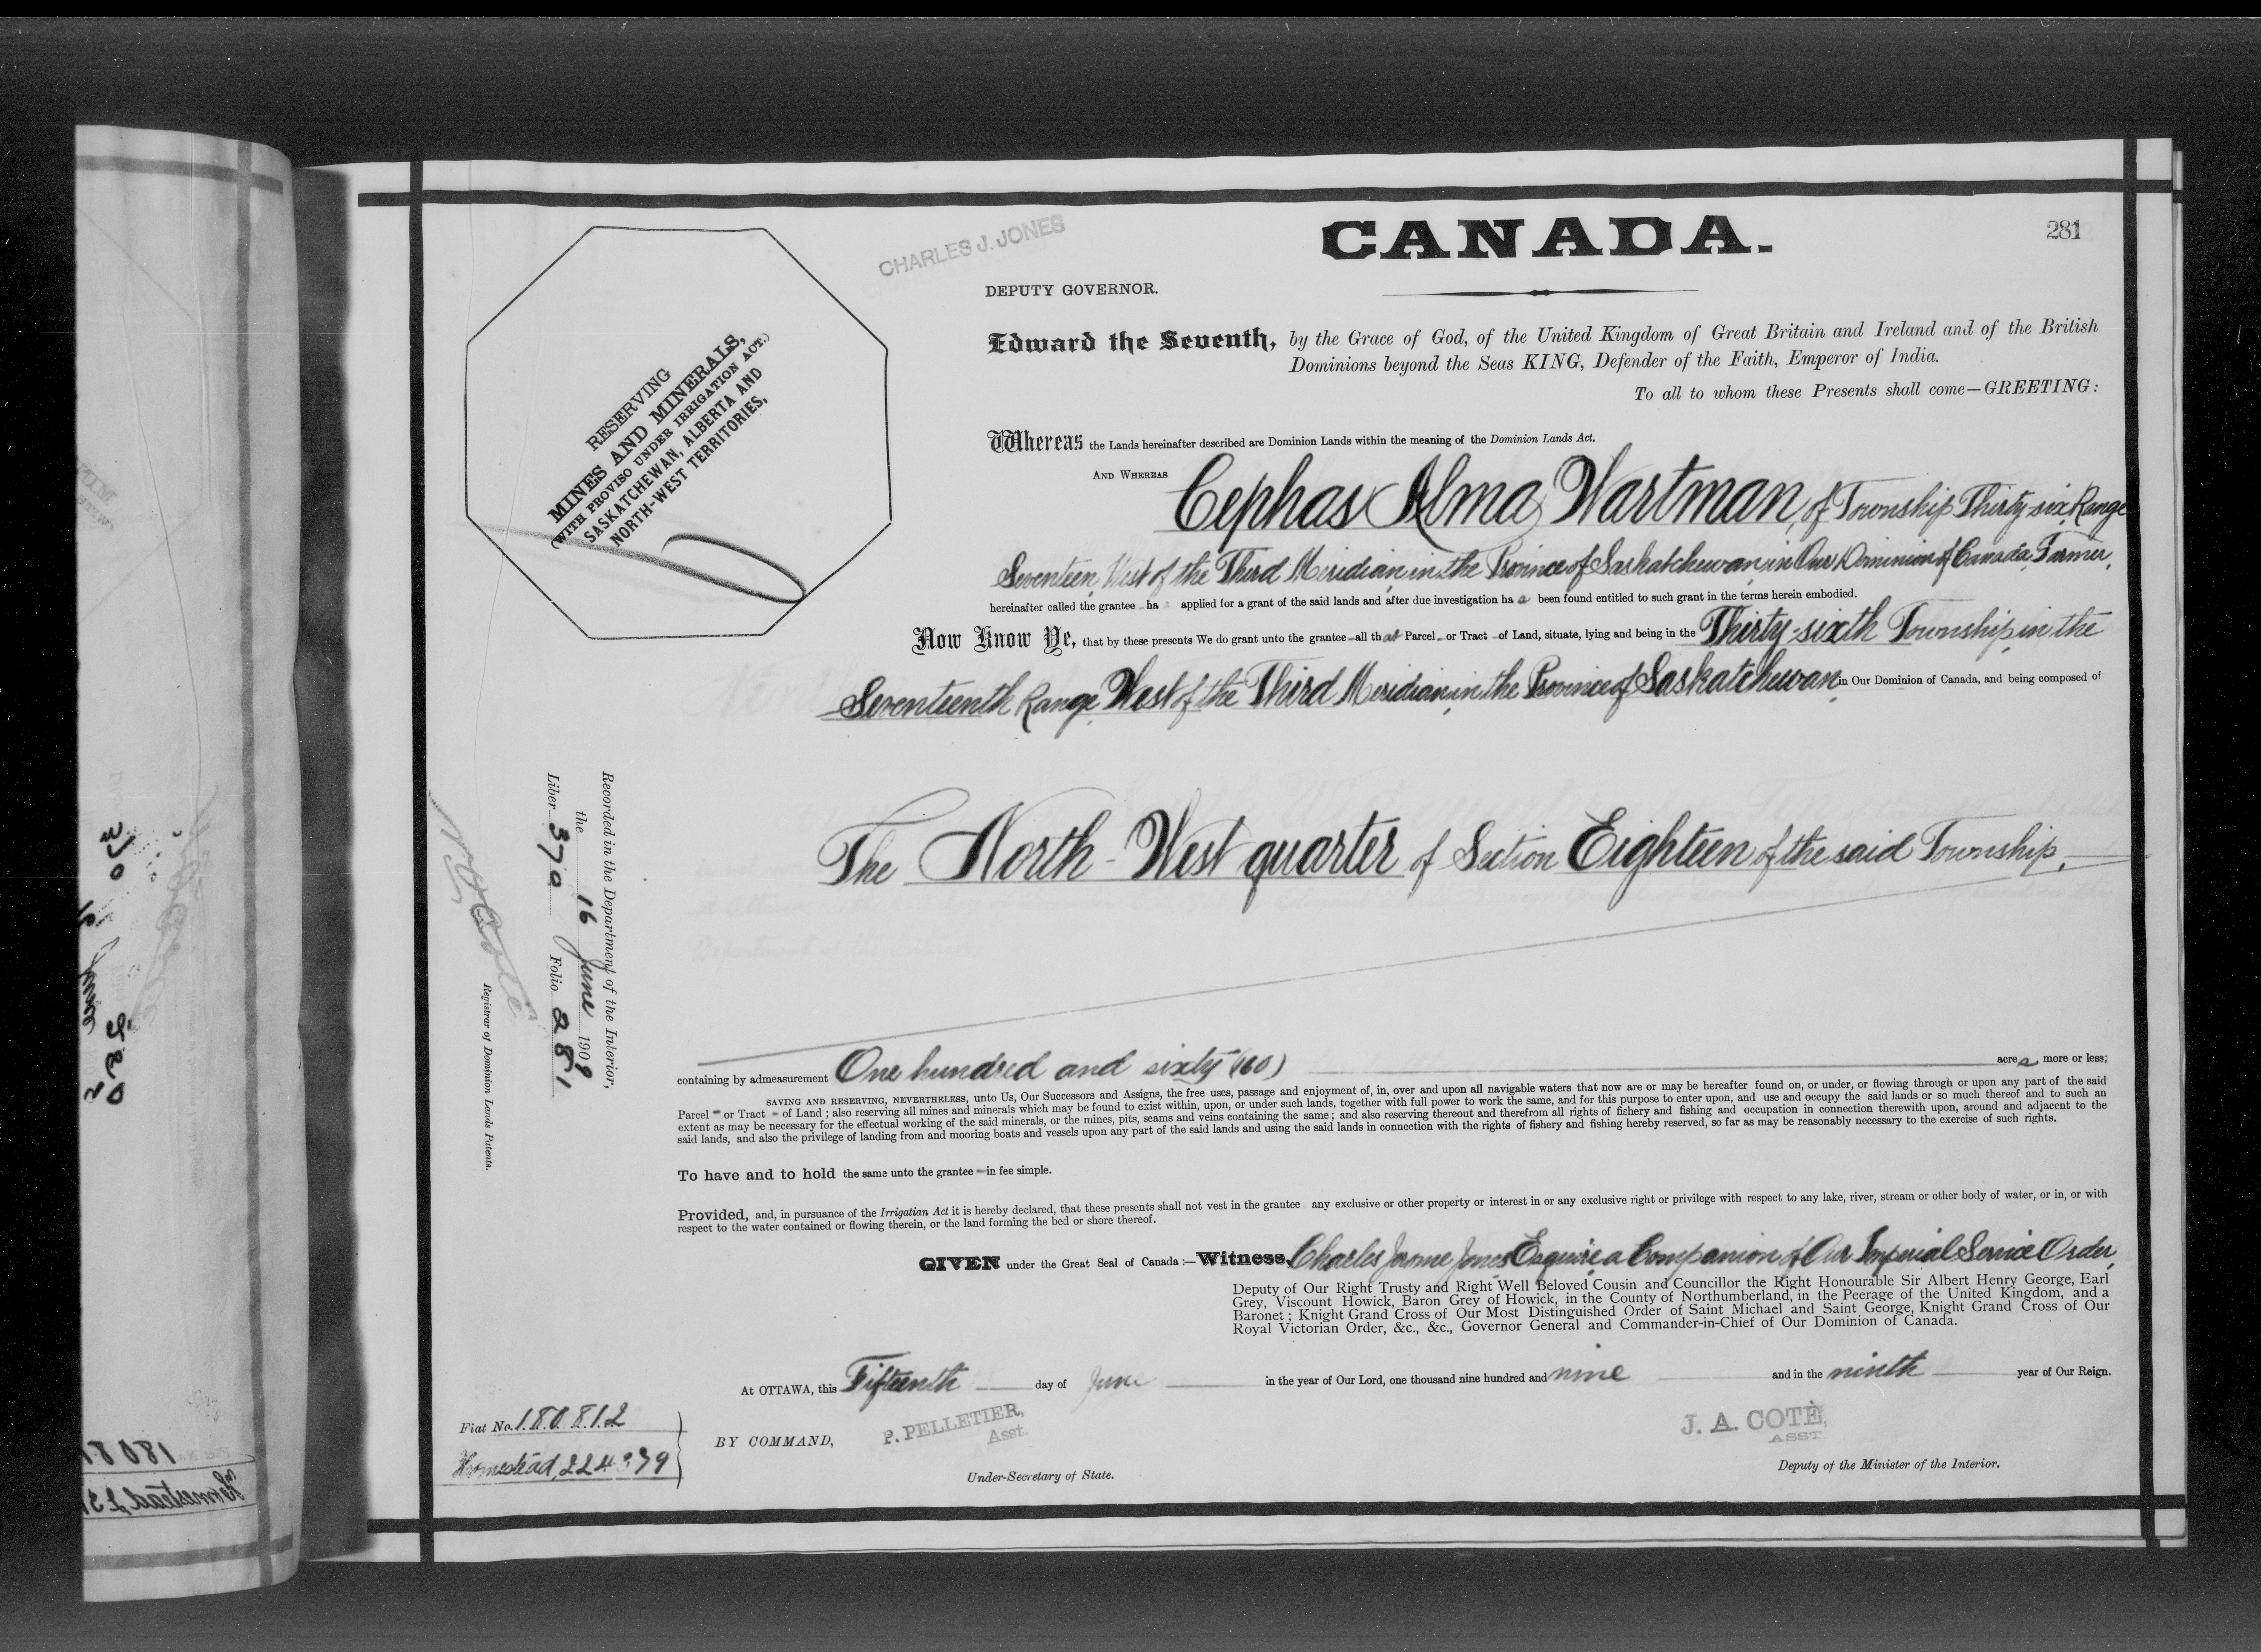 CANADA.
281
CHARLES J. JONES
DEPUTY GOVERNOR.
RESERVING
MINES AND MINERALS,
(WITH PROVISO UNDER IRRIGATION ACT.)
SASKATCHEWAN, ALBERTA AND
NORTH-WEST TERRITORIES,
Edward the Seventh, by the Grace of God, of the United Kingdom of Great Britain and Ireland and of the British
Dominions beyond the Seas KING, Defender of the Faith, Emperor of India.
To all to whom these Presents shall come—GREETING:
Whereas the Lands hereinafter described are Dominion Lands within the meaning of the Dominion Lands Act.
AND WHEREAS Cephas Alma Wartman, of Township Thirty-six, Range
Seventeen, West of the Third Meridian, in the Province of Saskatchewan, in Our Dominion of Canada, Farmer,
hereinafter called the grantee ha s applied for a grant of the said lands and after due investigation ha s been found entitled to such grant in the terms herein embodied.
Now Know Ye, that by these presents We do grant unto the grantee all that Parcel or Tract of Land, situate, lying and being in the Thirty-sixth Township, in the
Seventeenth Range, West of the Third Meridian, in the Province of Saskatchewan, in Our Dominion of Canada, and being composed of
The North-West quarter of Section Eighteen of the said Township,
Recorded in the Department of the Interior,
the 16 June 1909
Liber 370 Folio 281
Registrar of Dominion Lands Patents.
containing by admeasurement One hundred and sixty (160) acres, more or less;
SAVING AND RESERVING, NEVERTHELESS, unto Us, Our Successors and Assigns, the free uses, passage and enjoyment of, in, over and upon all navigable waters that now are or may be hereafter found on, or under, or flowing through or upon any part of the said
Parcel or Tract of Land; also reserving all mines and minerals which may be found to exist within, upon, or under such lands, together with full power to work the same, and for this purpose to enter upon, and use and occupy the said lands or so much thereof and to such an
extent as may be necessary for the effectual working of the said minerals, or the mines, pits, seams and veins containing the same; and also reserving thereout and therefrom all rights of fishery and fishing and occupation in connection therewith upon, around and adjacent to the
said lands, and also the privilege of landing from and mooring boats and vessels upon any part of the said lands and using the said lands in connection with the rights of fishery and fishing hereby reserved, so far as may be reasonably necessary to the exercise of such rights.
To have and to hold the same unto the grantee in fee simple.
Provided, and, in pursuance of the Irrigatian Act it is hereby declared, that these presents shall not vest in the grantee any exclusive or other property or interest in or any exclusive right or privilege with respect to any lake, river, stream or other body of water, or in, or with
respect to the water contained or flowing therein, or the land forming the bed or shore thereof.
GIVEN under the Great Seal of Canada:—Witness, Charles Jerome Jones Esquire, a Companion of Our Imperial Service Order,
Deputy of Our Right Trusty and Right Well Beloved Cousin and Councillor the Right Honourable Sir Albert Henry George, Earl
Grey, Viscount Howick, Baron Grey of Howick, in the County of Northumberland, in the Peerage of the United Kingdom, and a
Baronet; Knight Grand Cross of Our Most Distinguished Order of Saint Michael and Saint George, Knight Grand Cross of Our
Royal Victorian Order, &c., &c., Governor General and Commander-in-Chief of Our Dominion of Canada.
At OTTAWA, this Fifteenth day of June in the year of Our Lord, one thousand nine hundred and nine and in the ninth year of Our Reign.
Fiat No. 180812
Homestead,
BY COMMAND,
P. PELLETIER,
Asst.
Under-Secretary of State.
J. A. COTÉ,
ASST
Deputy of the Minister of the Interior.